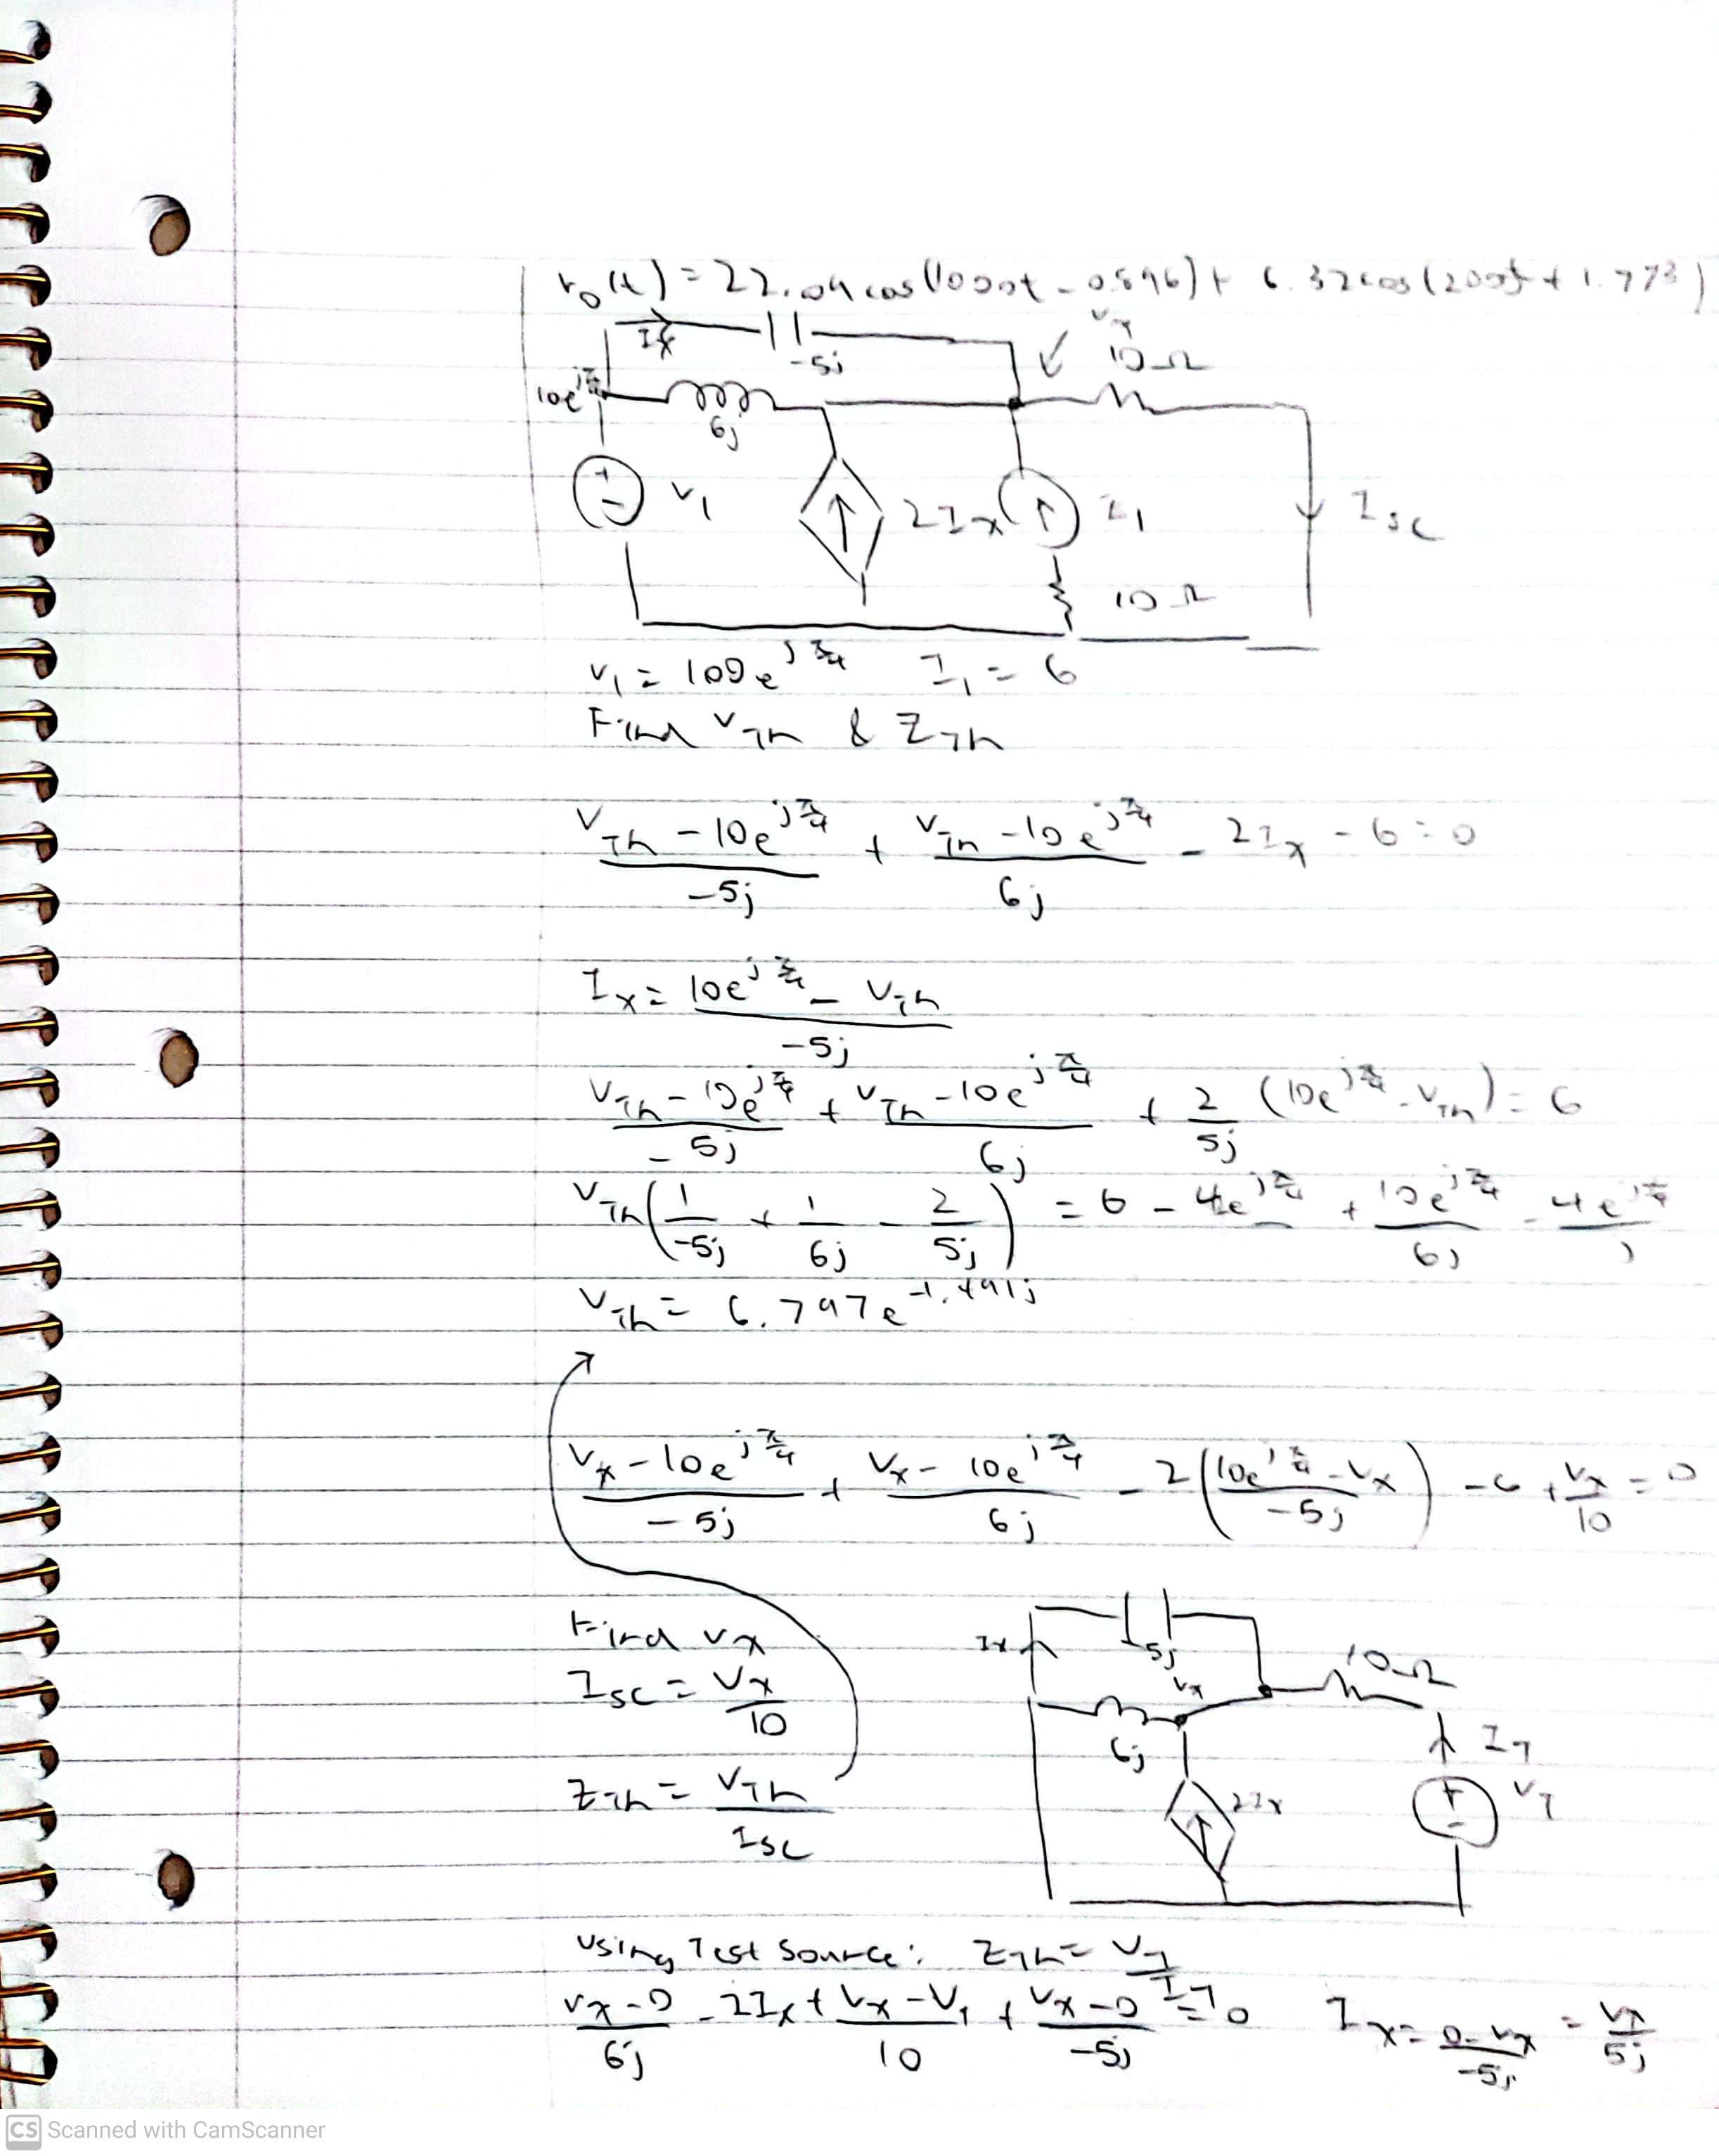 v₀(t) = 22.09 cos(1000t - 0.896) + 6.32 cos(2000t + 1.773)
Ix
-5j
Vx
10Ω
10e^{jπ/4}
6j
V₁
2Ix
I₁
Isc
10Ω
V₁ = 100e^{jπ/4} I₁ = 6
Find VTh & ZTh
(VTh - 10e^{jπ/4})/(-5j) + (VTh - 10e^{jπ/4})/(6j) - 2Ix - 6 = 0
Ix = (10e^{jπ/4} - VTh)/(-5j)
(VTh - 10e^{jπ/4})/(-5j) + (VTh - 10e^{jπ/4})/(6j) + 2/(5j) (10e^{jπ/4} - VTh) = 6
VTh(1/(-5j) + 1/(6j) - 2/(5j)) = 6 - 4e^{jπ/4} + 10e^{jπ/4}/(6j) - 4e^{jπ/4}/j
VTh = 6.797e^{-1.491j}
(Vx - 10e^{jπ/4})/(-5j) + (Vx - 10e^{jπ/4})/(6j) - 2((10e^{jπ/4} - Vx)/(-5j)) - 6 + Vx/10 = 0
Find Vx
Isc = Vx/10
ZTh = VTh/Isc
Ix
-5j
10Ω
Vx
6j
IT
2Ix
VT
Using Test Source: ZTh = VT/IT
(Vx - 0)/(6j) - 2Ix + (Vx - VT)/10 + (Vx - 0)/(-5j) = 0 Ix = (0 - Vx)/(-5j) = Vx/(5j)
CS Scanned with CamScanner